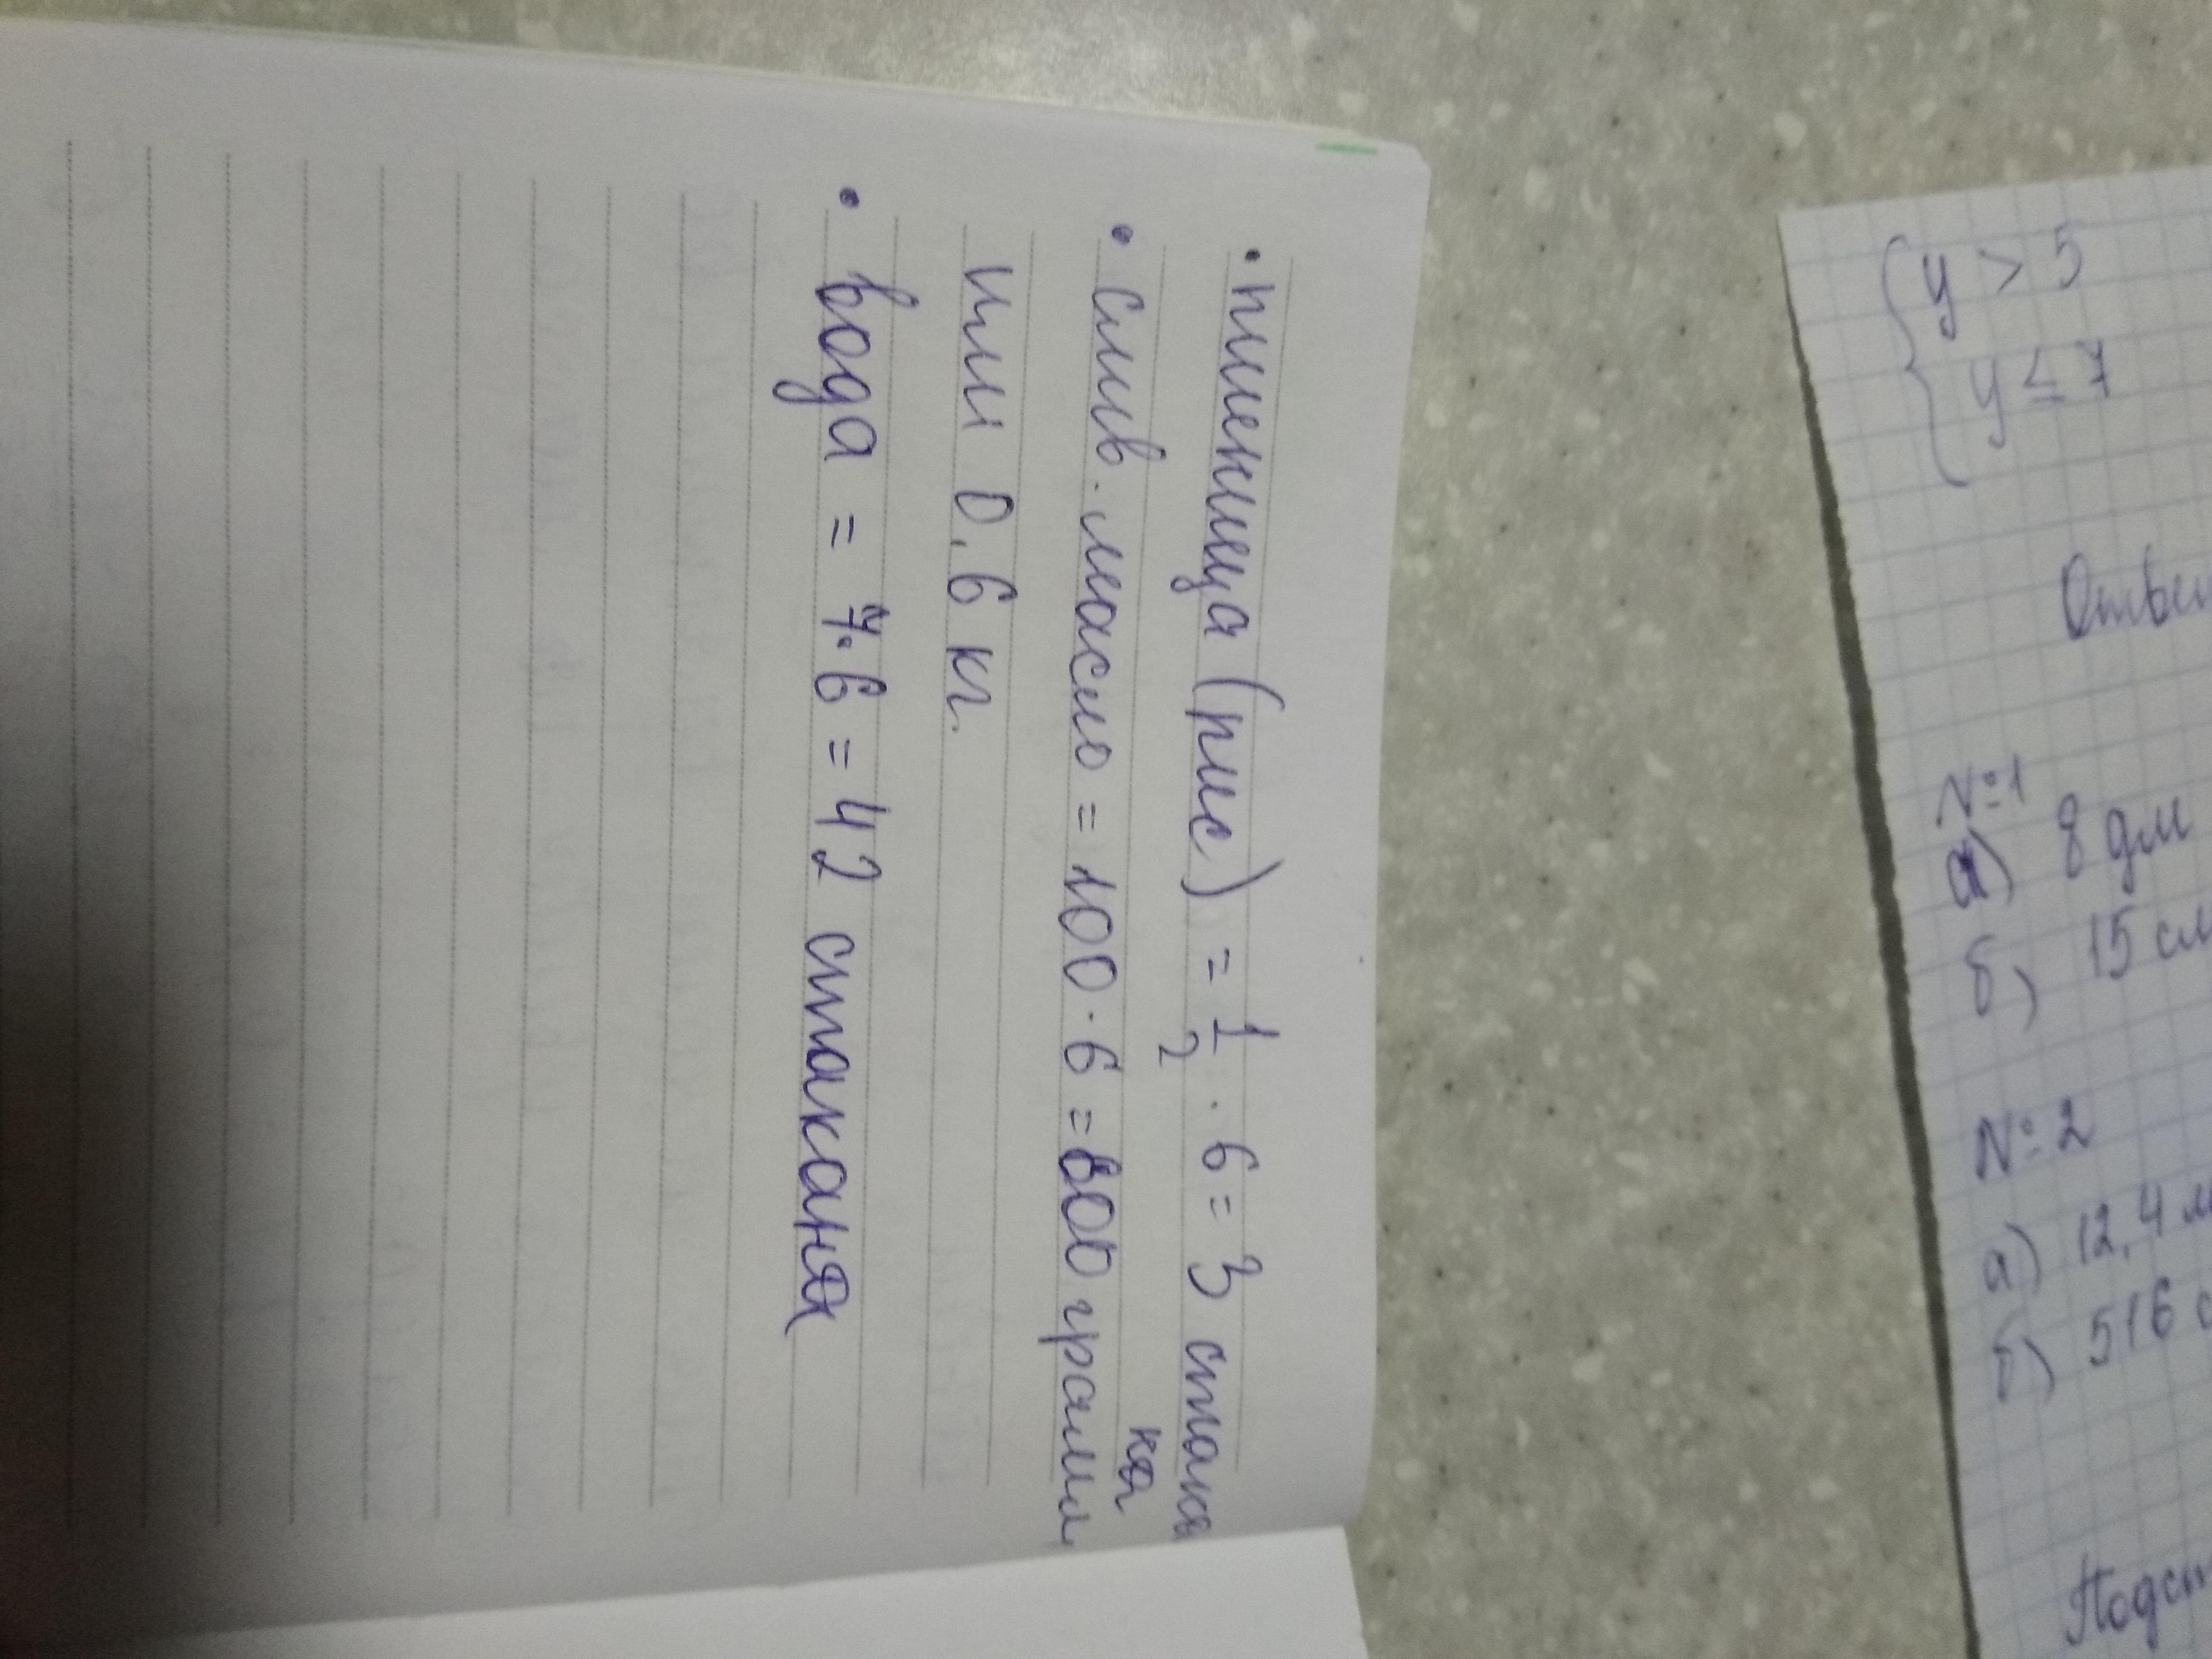 • пшеница (плс) = 1/2 · 6 = 3 стака
кая
• слив. масло = 100 · 6 = 600 грамм
или 0.6 кг.
• вода = 7 · 6 = 42 стакана
{ y > 5
y ≤ 7
№1
а) 8 дм
б) 15 см
№2
а) 12,4 м
б) 516 с